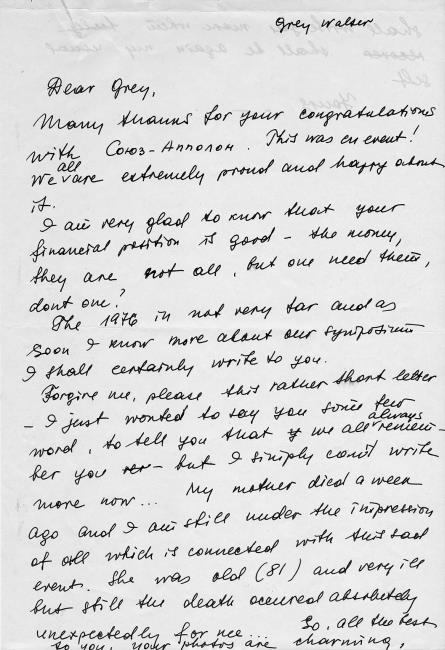 Grey Walter
Dear Grey,
Many thanks for your congratulations
with Союз-Апполон. This was en event!
We all are extremely proud and happy about
it.
I am very glad to know that your
financial position is good - the money,
they are not all, but one need them,
dont one?
The 1976 in not very far and as
soon I know more about our symposium
I shall certainly write to you.
Forgive me, please this rather short letter
- I just wonted to say you some few
word, to tell you that we all always remem-
ber you - but I simply can't write
more now... My mother died a week
ago and I am still under the impression
of all which is connected with this sad
event. She was old (81) and very ill
but still the death occured absolutely
unexpectedly for me... So, all the best
to you, your photos are charming,